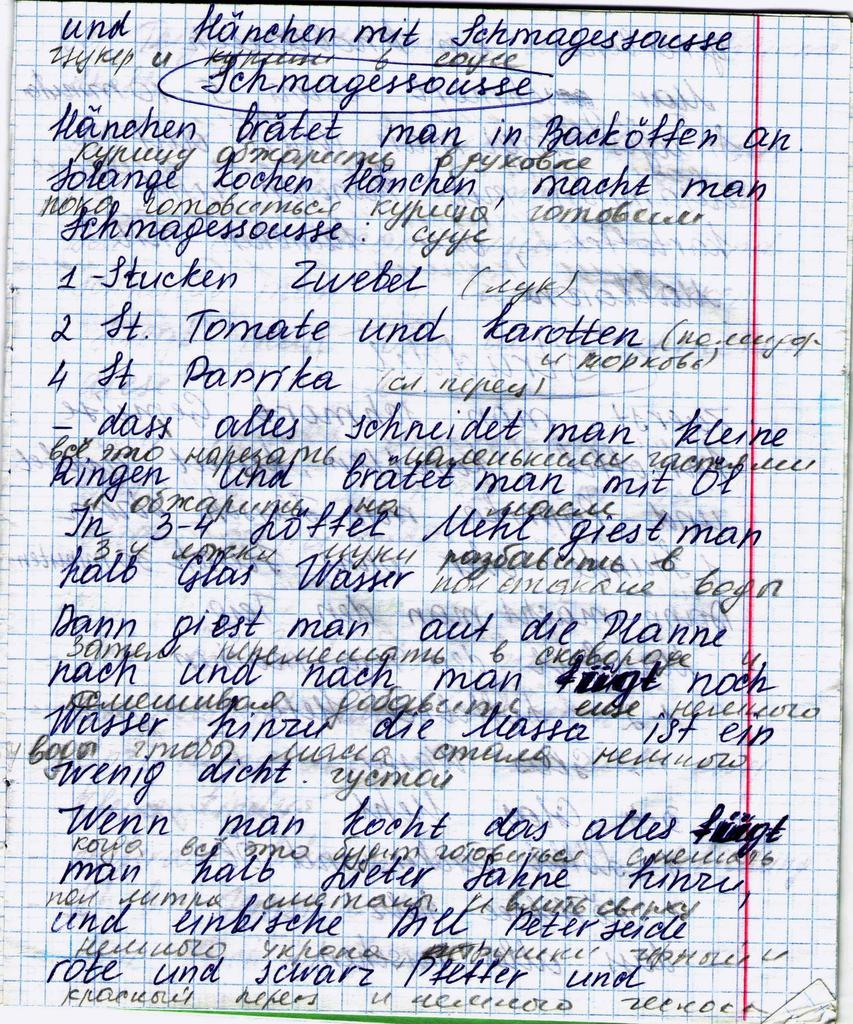 und Hänchen mit Schmagessousse
цукер и курица в соусе
Schmagessousse
Hänchen brätet man in Backöffen an.
курицу обжарить в духовке
Solange kochen Hänchen, macht man
пока готовиться курица готовим
Schmagessousse: суус
1 - Stucken Zwebel (лук)
2 St. Tomate und Karotten (помидор
и морковь)
4 St Paprika (сл перец)
- dass alles schneidet man kleine
всё это нарезать маленькими частями
Ringen und brätet man mit Öl
и обжарить на масле
In 3-4 Löffel Mehl giest man
3-4 ложки муки разбавить в
halb Glas Wasser пол стакане воды
Dann giest man auf die Planne
Затем перемешать в сковороде и
nach und nach man fügt noch
помешивая добавить еще немного
Wasser hinzu die Massa ist ein
воды чтобы масса стала немного
wenig dicht. густой
Wenn man kocht das alles fügt
кога все это будит готовиться смешать
man halb Lieter Sahne hinzu,
пол литра сметаны и влить сверху
und einbische Dill Peterseide
немного укропа петрушки чёрный и
rote und schwarz Pfeffer und
красный перец и немного чеснока